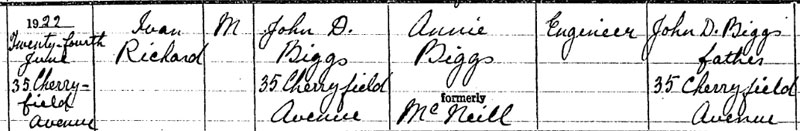 1922
Twenty-fourth
June
35 Cherry-
field
Avenue
Ivan
Richard
M
John D.
Biggs
35 Cherryfield
Avenue
Annie
Biggs
formerly
McNeill
Engineer
John D. Biggs
father
35 Cherryfield
Avenue